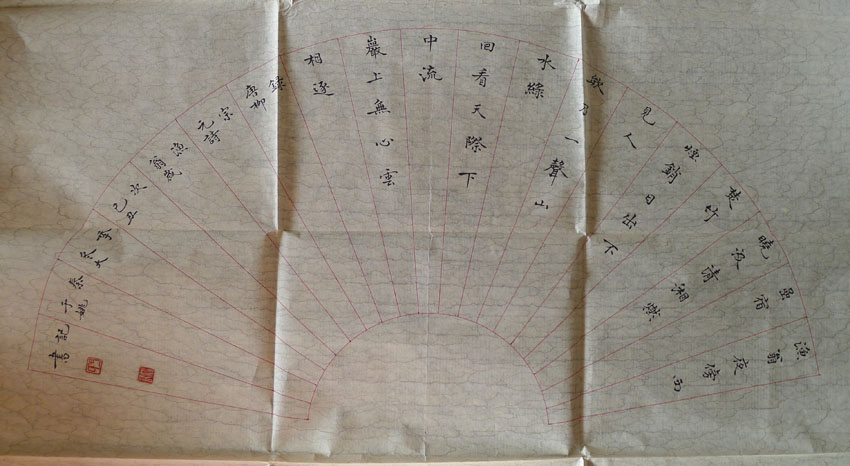 漁翁夜傍西
喦宿
曉汲清湘燃
楚竹
煙銷日出不
見人
欸乃一聲山
水綠
回看天際下
中流
巖上無心雲
相逐
錄唐柳
宗元詩
漁翁歲
次己丑
記書